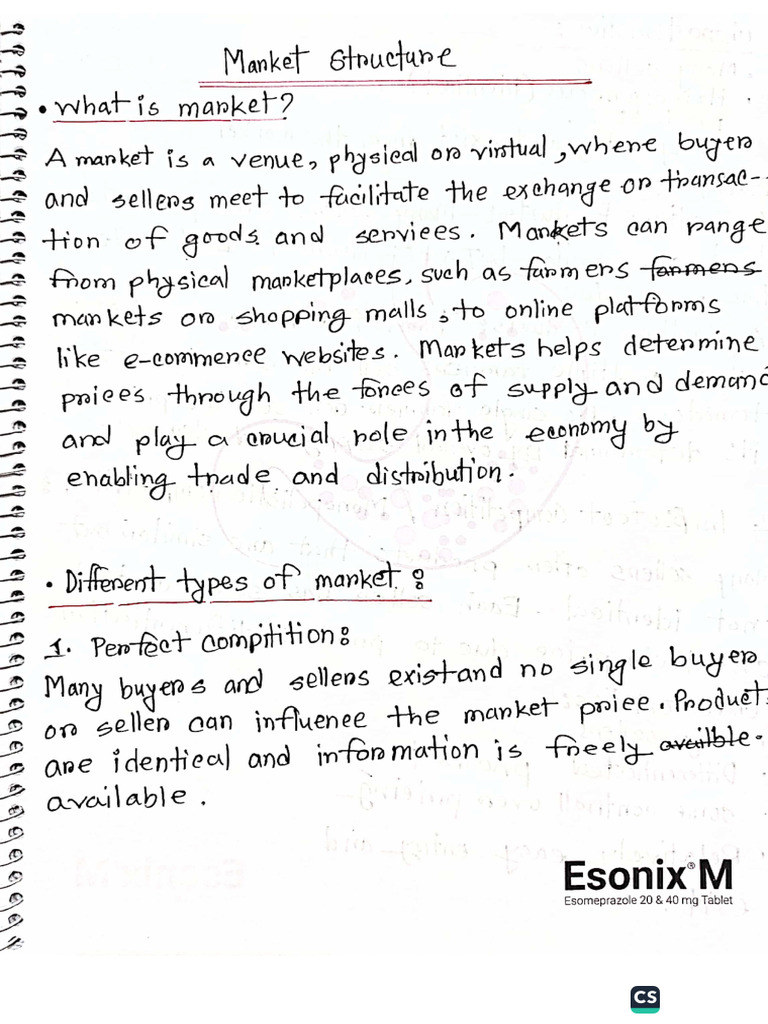 Market Structure
• What is market?
A market is a venue, physical or virtual, where buyer
and sellers meet to facilitate the exchange or transac-
tion of goods and services. Markets can range
from physical marketplaces, such as farmers farmers
markets or shopping malls, to online platforms
like e-commerce websites. Markets helps determine
prices through the forces of supply and demand
and play a crucial role in the economy by
enabling trade and distribution.
• Different types of market :
1. Perfect compitition:
Many buyers and sellers exist and no single buyer
or seller can influence the market price. Product
are identical and information is freely availble.
available.
Esonix® M
Esomeprazole 20 & 40 mg Tablet
CS